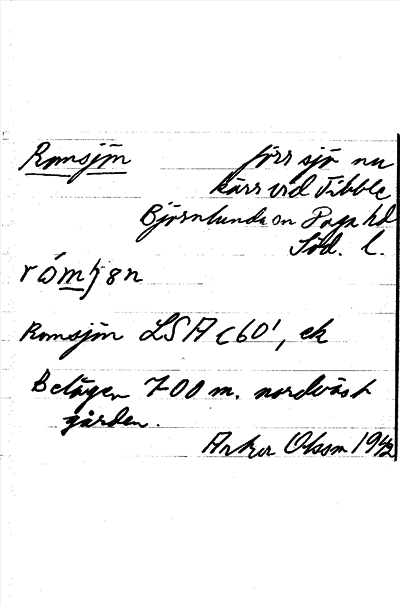 Romsjön
förr sjö nu
kärr vid Fibble
Björnlunda sn Daga hd
Söd. l.
ròmʃön
Romsjön LSA C60', ek
Belägen 700 m. nordväst
gården.
Olsson 1942